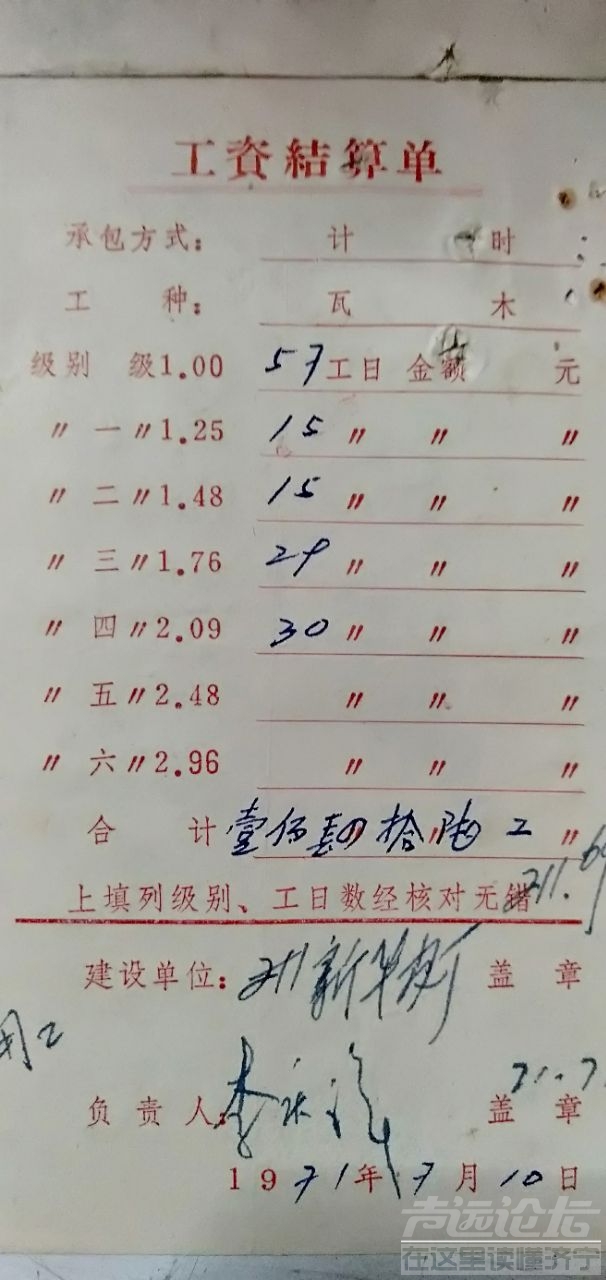 工資結算单
承包方式： 计 时
工 种： 瓦 木
级别 级1.00 57工日 金额 元
〃 一〃1.25 15〃 〃 〃
〃 二〃1.48 15〃 〃 〃
〃 三〃1.76 29〃 〃 〃
〃 四〃2.09 30〃 〃 〃
〃 五〃2.48 〃 〃 〃
〃 六〃2.96 〃 〃 〃
合 计 壹佰肆拾陆工 〃
211.69
上填列级别、工日数经核对无错
建设单位： 新华 盖 章
用工
71.7
负责人： 李 盖 章
1971年7月10日
声远论坛
在这里读懂济宁